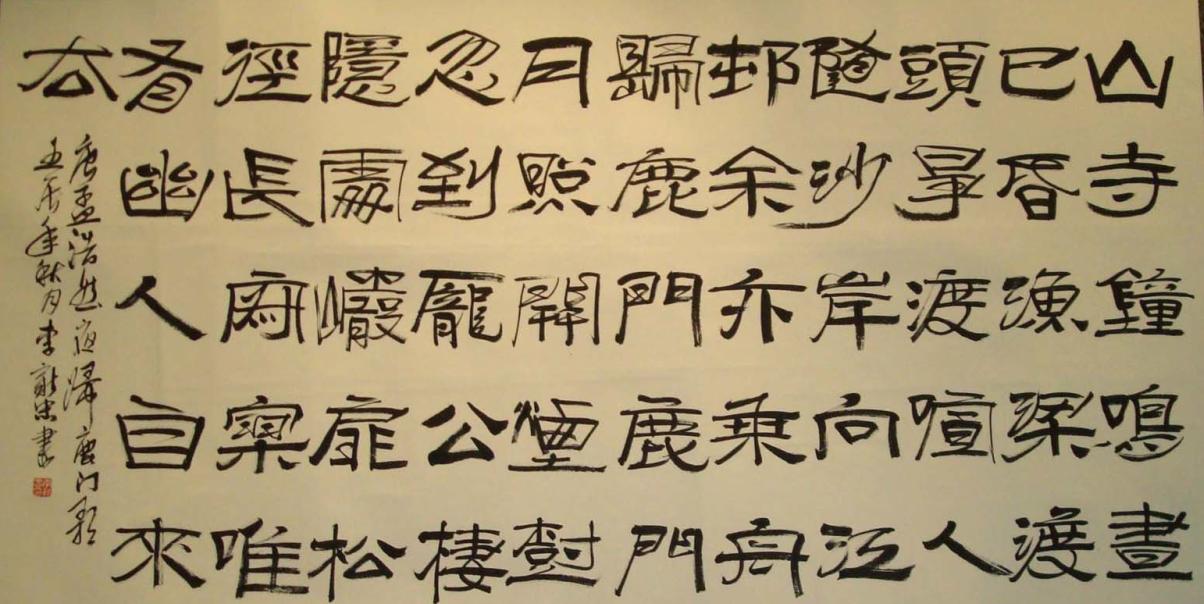 山寺鐘鳴晝
已昏漁梁渡
頭爭渡喧人
隨沙岸向江
邨余亦乘舟
歸鹿門鹿門
月照開煙樹
忽到龐公棲
隱處巖扉松
徑長寂寥唯
有幽人自來
去
唐孟浩然夜歸鹿門歌
壬辰年秋月李忠書